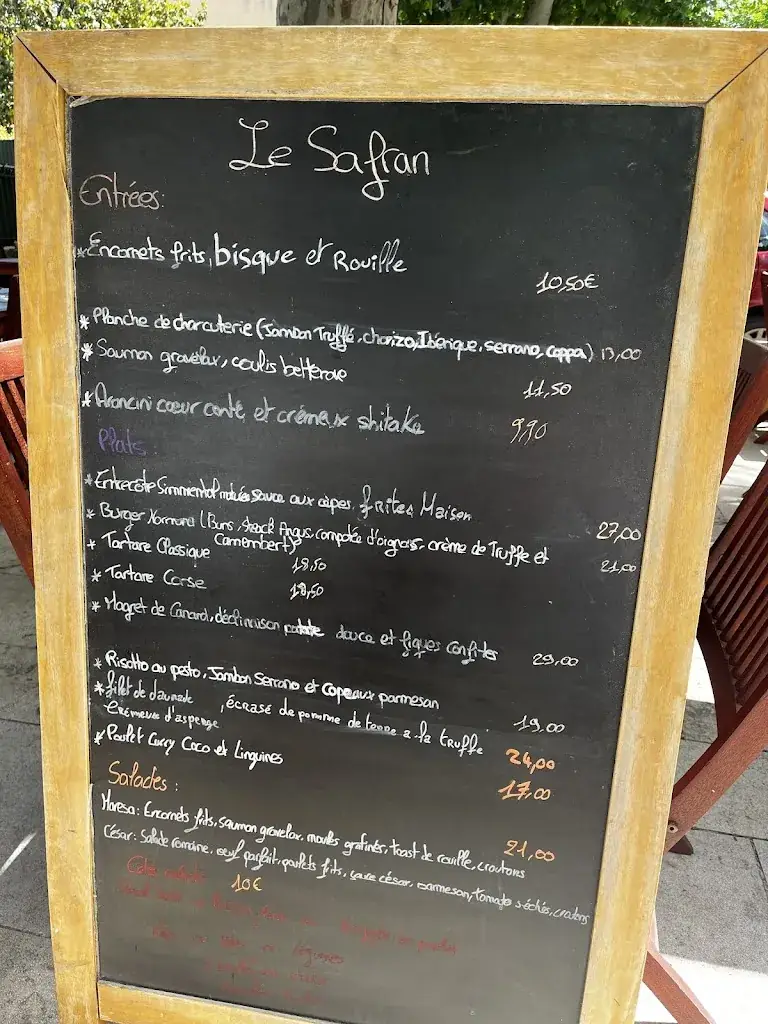 Le Safran
Entrées:
*Encornets frits, bisque et Rouille
10,50€
*Planche de charcuterie (Jambon Truffé, chorizo, Ibérique, serrano, coppa) 13,00
*Saumon gravelax, coulis betterave
11,50
*Arancini cœur conté et crémeux shitake
9,90
Plats:
*Entrecôte Simmental maturée sauce aux cèpes, frites Maison
27,00
*Burger Normand (Buns, steack Angus, compotée d'oignons, crème de Truffe et
Camembert)
21,00
*Tartare Classique 18,50
*Tartare Corse 18,50
*Magret de Canard, déclinaison patate douce et figues confites 29,00
*Risotto au pesto, Jambon Serrano et Copeaux parmesan
19,00
*filet de daurade, écrasé de pomme de terre a la truffe
Crémeux d'asperge
24,00
*Poulet Curry Coco et Linguines
17,00
Salades:
Maresa: Encornets frits, saumon gravelax, moules gratinés, toast de rouille, croutons
21,00
César: Salade romaine, œuf parfait, poulets frits, sauce césar, parmesan, tomate séchés, croutons
10€
légumes